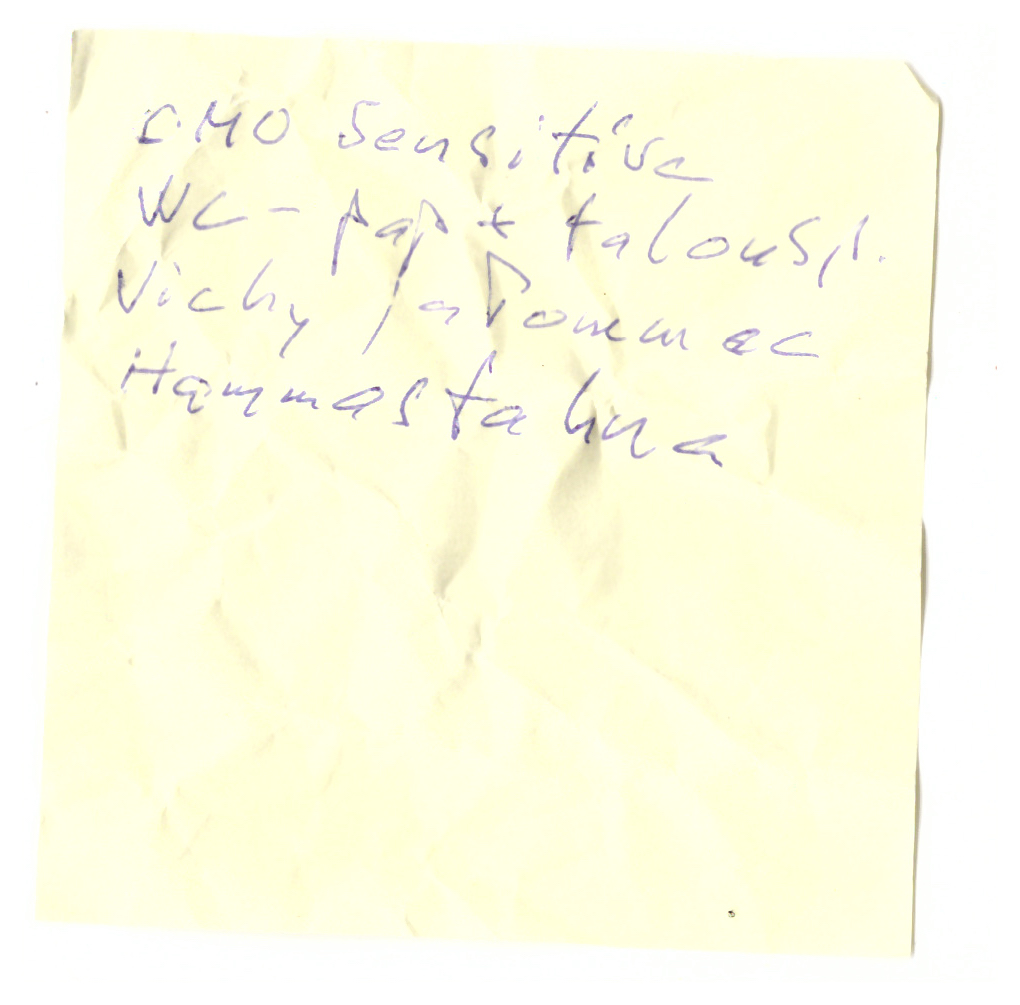 EMO Sensitive
WC-pap + talousp.
Vichy ja Pommac
Hammastahna